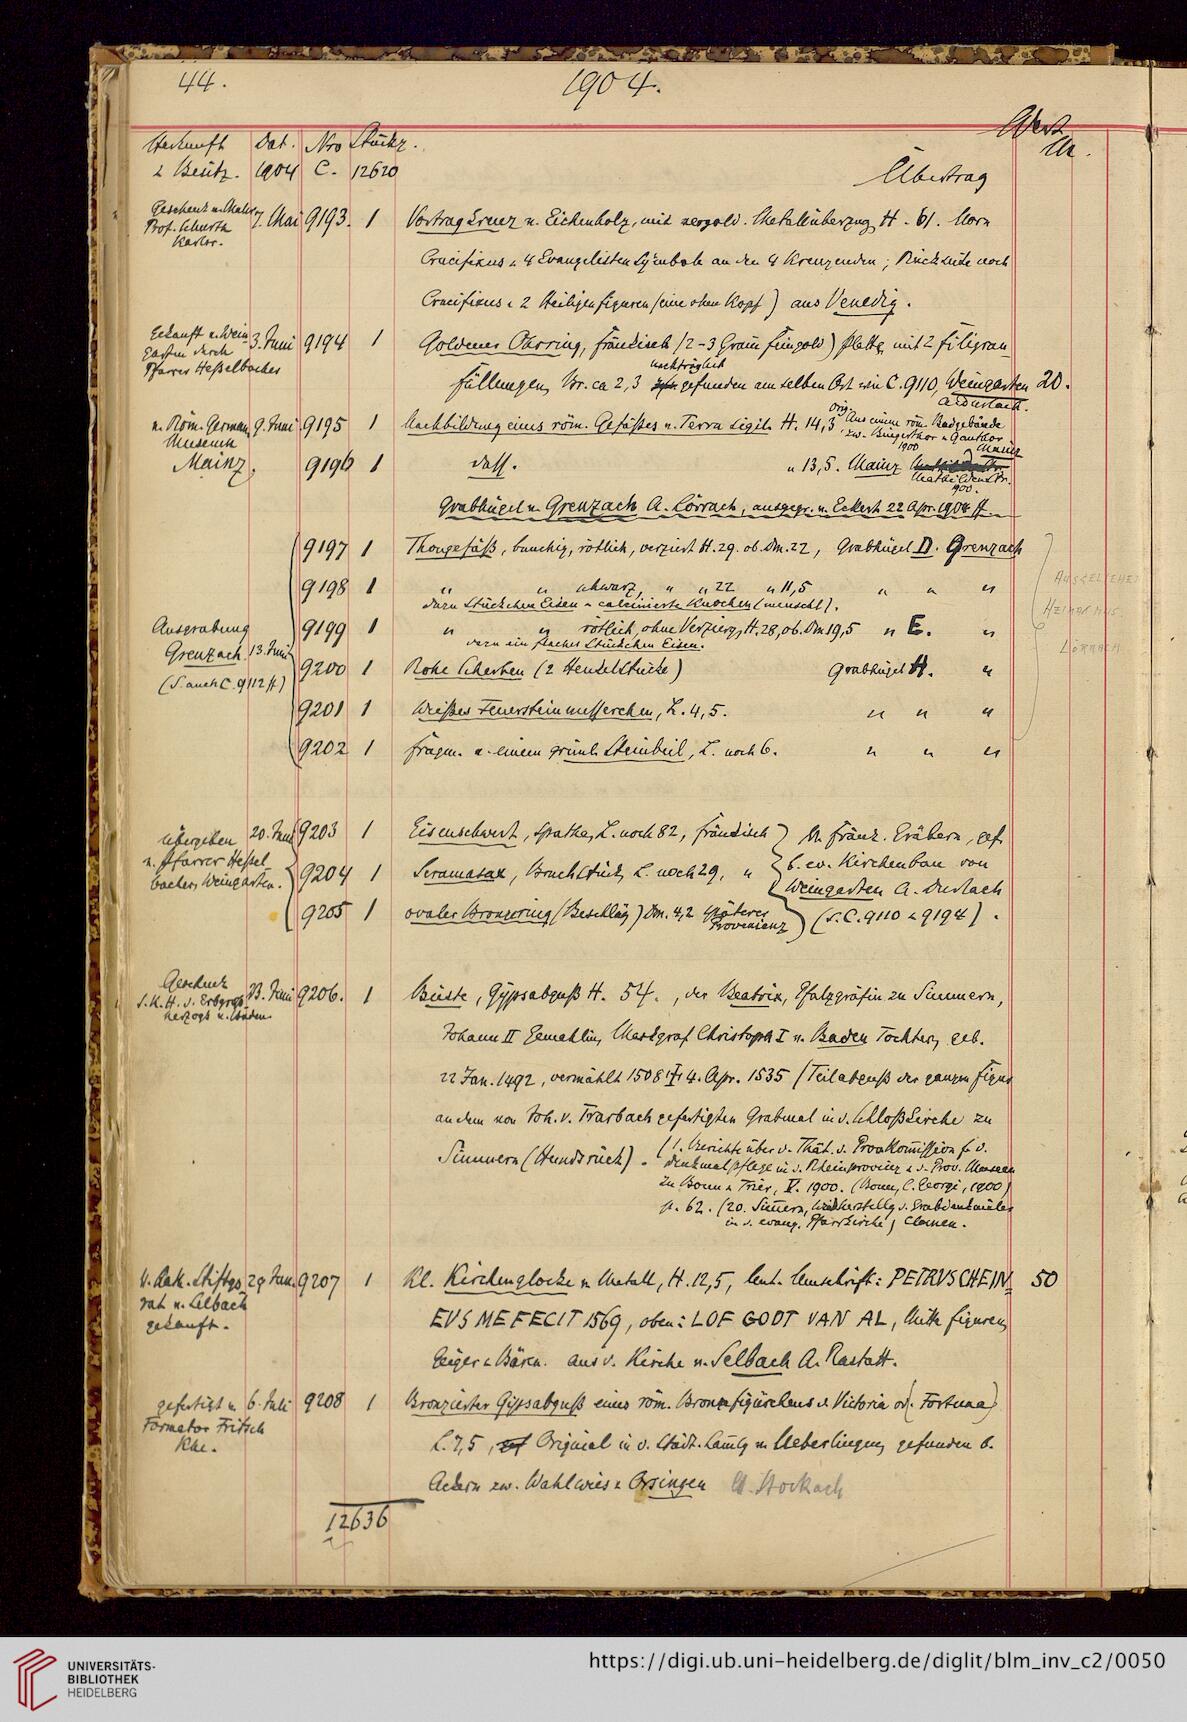 44.
1904.
Wert
M.
Herkunft Dat. Nro Stückz.
u. Besitz. 1904 C. 12620
Übertrag
Geschenk v. Maler
Prof.
Karlsr.
7. Mai 9193. 1 Vortragkreuz v. Eichenholz, mit vergold. Metallüberzug, H. 61. Vorn
Crucifixus u. 4 Evangelisten Symbole an den 4 Kreuzenden; Rückseite noch
Crucifixus u. 2 Heiligenfiguren (eine ohne Kopf) aus Venedig.
Gekauft v. Wein-
garten durch
Pfarrer Hesselbacher
3. Juni 9194 1 Goldener Ohrring, fränkisch (2-3 Gram̄ Feingold) Platte, mit 2 Filigran-
füllungen, Br. ca 2,3 nachträglich gefunden am selben Ort wie C. 9110, Weingarten 20.
A. Durlach.
v. Röm. German.
Museum
Mainz.
9. Juni 9195 1 Nachbildung eines röm. Gefäßes v. Terra sigil. H. 14,3 Orig. Aus einem röm. Badgebäude
zw. Bingerthor u. Gauthor
1900 Mainz
9196 1 dass. " 13,5. Mainz
Mathildenstr.
1900.
Grabhügel v. Grenzach A. Lörrach, ausgegr. v. Eckert 22 Apr. 1904 ff.
9197 1 Thongefäß, bauchig, rötlich, verziert H. 29. ob. Dm. 22, Grabhügel D. Grenzach
9198 1 " " schwarz, " " 22 " 11,5 " " "
dazu Stückchen Eisen u. calcinierte Knochen (menschl.).
Ausgrabung
Grenzach
(S. auch C. 9112 ff)
13. Juni
9199 1 " " rötlich, ohne Verzierg, H. 28, ob. Dm 19,5 " E. "
dazu ein flaches Stückchen Eisen.
9200 1 Rohe Scherben (2 Henkelstücke) Grabhügel H. "
9201 1 Weißes Feuersteinmesserchen, L. 4,5. " " "
9202 1 Fragm. v. einem grünl. Steinbeil, L. noch 6. " " "
AUSGELIEHEN
HEIMATMUS.
LÖRRACH
übergeben
v. Pfarrer Hessel
bacher, Weingarten.
20. Juni 9203 1 Eisenschwert, Spatha, L. noch 82, fränkisch
9204 1 Scramasax, Bruchstück, L. noch 29, "
9205 1 ovaler Bronzering (Beschläg) Dm. 4,2 späterer
Provenienz
A. fränk. Gräbern, gef.
b. ev. Kirchenbau von
Weingarten A. Durlach
(s. C. 9110 u. 9194).
Geschenk
S. K. H. d. Erbgroß-
herzogs v. Baden.
23. Juni 9206. 1 Büste, Gypsabguß H. 54., der Beatrix, Pfalzgräfin zu Simmern,
Johann II Gemahlin, Markgraf Christoph I v. Baden Tochter, geb.
22 Jan. 1492, vermählt 1508, † 4. Apr. 1535 (Teilabguß der ganzen Figur
an dem von Joh. v. Trarbach gefertigten Grabmal in d. Schloßkirche zu
Simmern (Hundsrück).
(s. Berichte über d. Thät. d. Prov. Kom̄ission f. d.
Denkmalpflege in d. Rheinprovinz u. d. Prov. Museen
zu Bonn u. Trier, V. 1900. (Bonn, C. Georgi, 1900)
p. 62. (20. Sim̄ern, Wiederherstellg d. Grabdenkmäler
in d. evang. Pfarrkirche) Clemen.
v. Rath. Stiftgs
rat v. Selbach
gekauft.
29. Jun. 9207 1 Kl. Kirchenglocke v. Metall, H. 12,5, lent. Umschrift: PETRVSCHEIN 50
EVS ME FECIT 1569, oben: LOF GODT VAN AL, Mitte Figuren,
Geiger u. Bären. aus d. Kirche v. Selbach A. Rastatt.
gefertigt v.
Formator Fritsch
Khe.
6. Juli 9208 1 Bronzierter Gipsabguß eines röm. Bronzefigürchens d. Victoria od. (Fortuna)
L. 7,5, Original in d. Städt. Sam̄lg v. Ueberlingen, gefunden b.
Ackern zw. Wahlwies u. Orsingen A. Stockach
12636
UNIVERSITÄTS-
BIBLIOTHEK
HEIDELBERG
https://digi.ub.uni-heidelberg.de/diglit/blm_inv_c2/0050